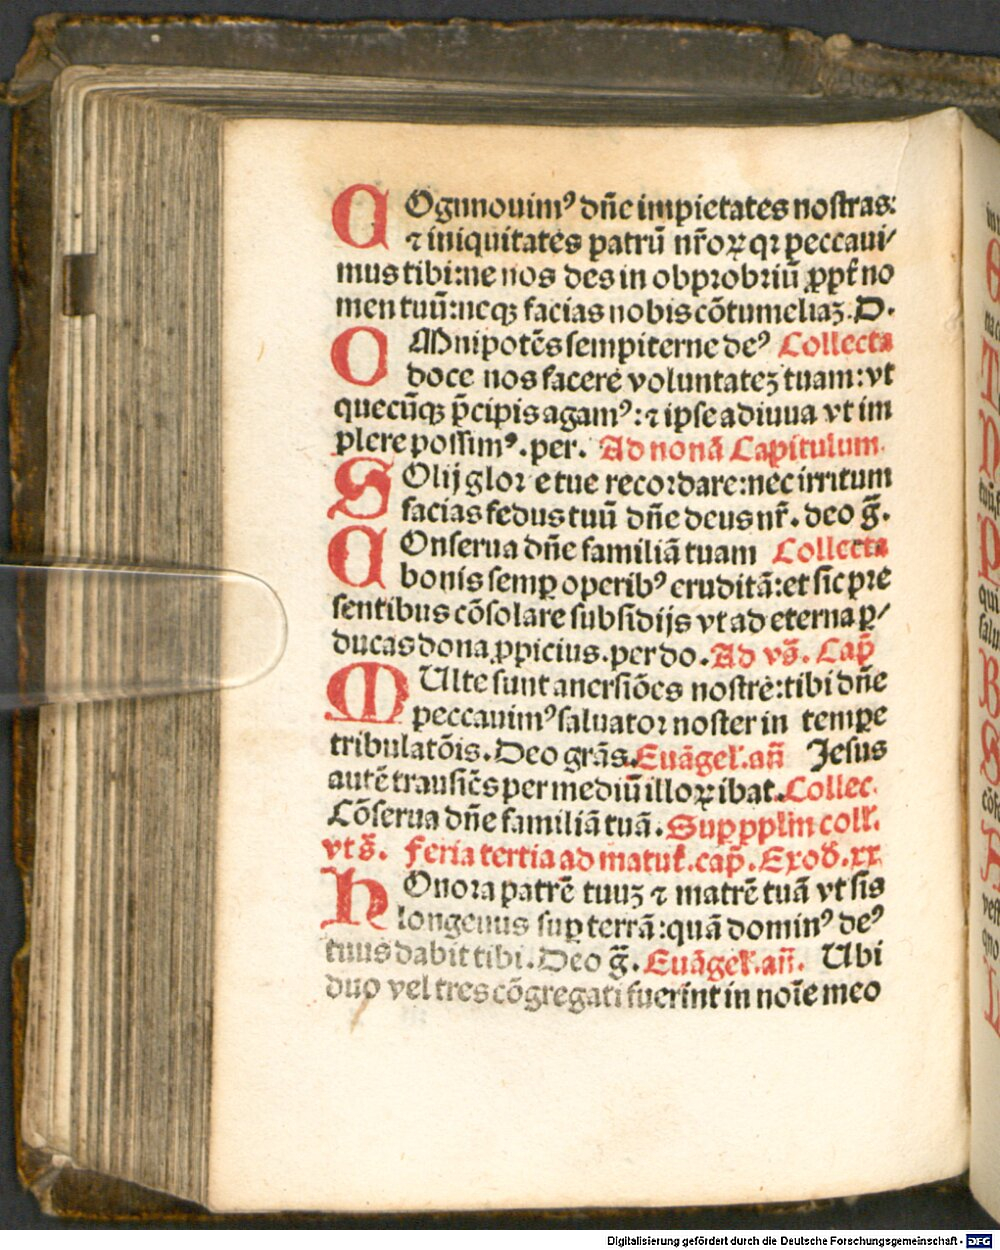 COgnnouimꝰ dñe impietates nostras:
⁊ iniquitates patrū nr̄oꝝ qꝛ peccaui/
mus tibi: ne nos des in obprobriū ꝓpt̄ no
men tuū: neqꝫ facias nobis cōtumeliaꝫ. D.
OMnipotēs sempiterne deꝰ Collecta
doce nos facere voluntateꝫ tuam: vt
quecūqꝫ p̄cipis agamꝰ: ⁊ ipse adiuua vt im
plere possimꝰ. per. Ad nonā Capitulum.
SOlij gloꝛ e tue recoꝛdare: nec irritum
facias fedus tuū dñe deus nr̄. deo g̃.
COnserua dñe familiā tuam Collecta
bonis semꝑ operibꝰ eruditā: et sic pre
sentibus cōsolare subsidijs vt ad eterna ꝑ/
ducas dona ꝓpicius. per do. Ad vs̄. Cap̄
MUlte sunt auersiōes nostre: tibi dñe
peccauimꝰ saluatoꝛ noster in tempe
tribulatōis. Deo grās. Euāgel̄. añ Jesus
autē trausiēs per mediū illoꝝ ibat. Collec.
Cōserua dñe familiā tuā. Suꝑ ppl̄m coll̄.
vt s̄. Feria tertia ad matut̄. cap̄. Exod̄. xx.
HOnoꝛa patrē tuuꝫ ⁊ matrē tuā vt sis
longeuus suꝑ terrā: quā dominꝰ deꝰ
tuus dabit tibi. Deo g̃. Euāgel̄. añ. Ubi
duo vel tres cōgregati fuerint in noīe meo
Digitalisierung gefördert durch die Deutsche Forschungsgemeinschaft - DFG